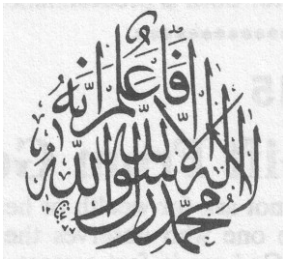 فاعلم أنه لا إله إلا الله محمد رسول الله